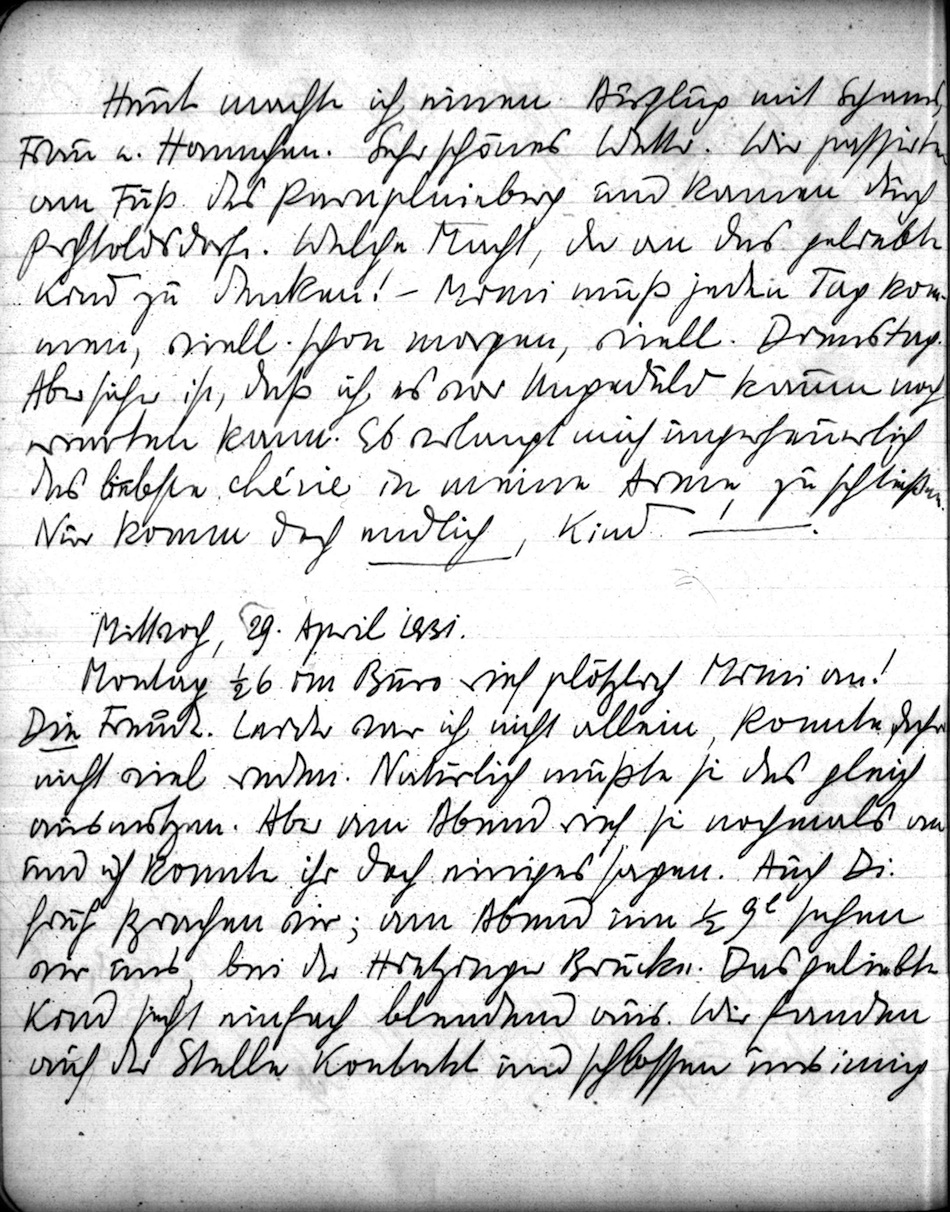 Heut machte ich einen Ausflug mit Schani,
Frau u. Hannchen. Sehr schönes Wetter. Wir passirten
am Fuß des Parapluieberg und kamen durch
Perchtoldsdorf. Welche Macht, da an das geliebte
Kind zu denken! – Mimi muß jeden Tag kom-
men, viell. schon morgen, viell. Dienstag.
Aber sicher ist, daß ich es vor Ungeduld kaum noch
erwarten kann. Es verlangt mich ungeheuerlich
das liebste chérie in meine Arme zu schließen.
Nur komm doch endlich, Kind —.
Mittwoch, 29. April 1931.
Montag ½6 im Büro rief plötzlich Mimi an!
Die Freude. Leider war ich nicht allein, konnte daher
nicht viel reden. Natürlich mußte sie das gleich
ausnützen. Aber am Abend rief sie nochmals an
und ich konnte ihr doch einiges sagen. Auch Di.
früh sprachen wir; am Abend um ½ 9ᵗ sahen
wir uns bei der Hietzinger Brücke. Das geliebte
Kind sieht einfach blendend aus. Wir fanden
auf der Stelle Kontakt und schlossen uns innig